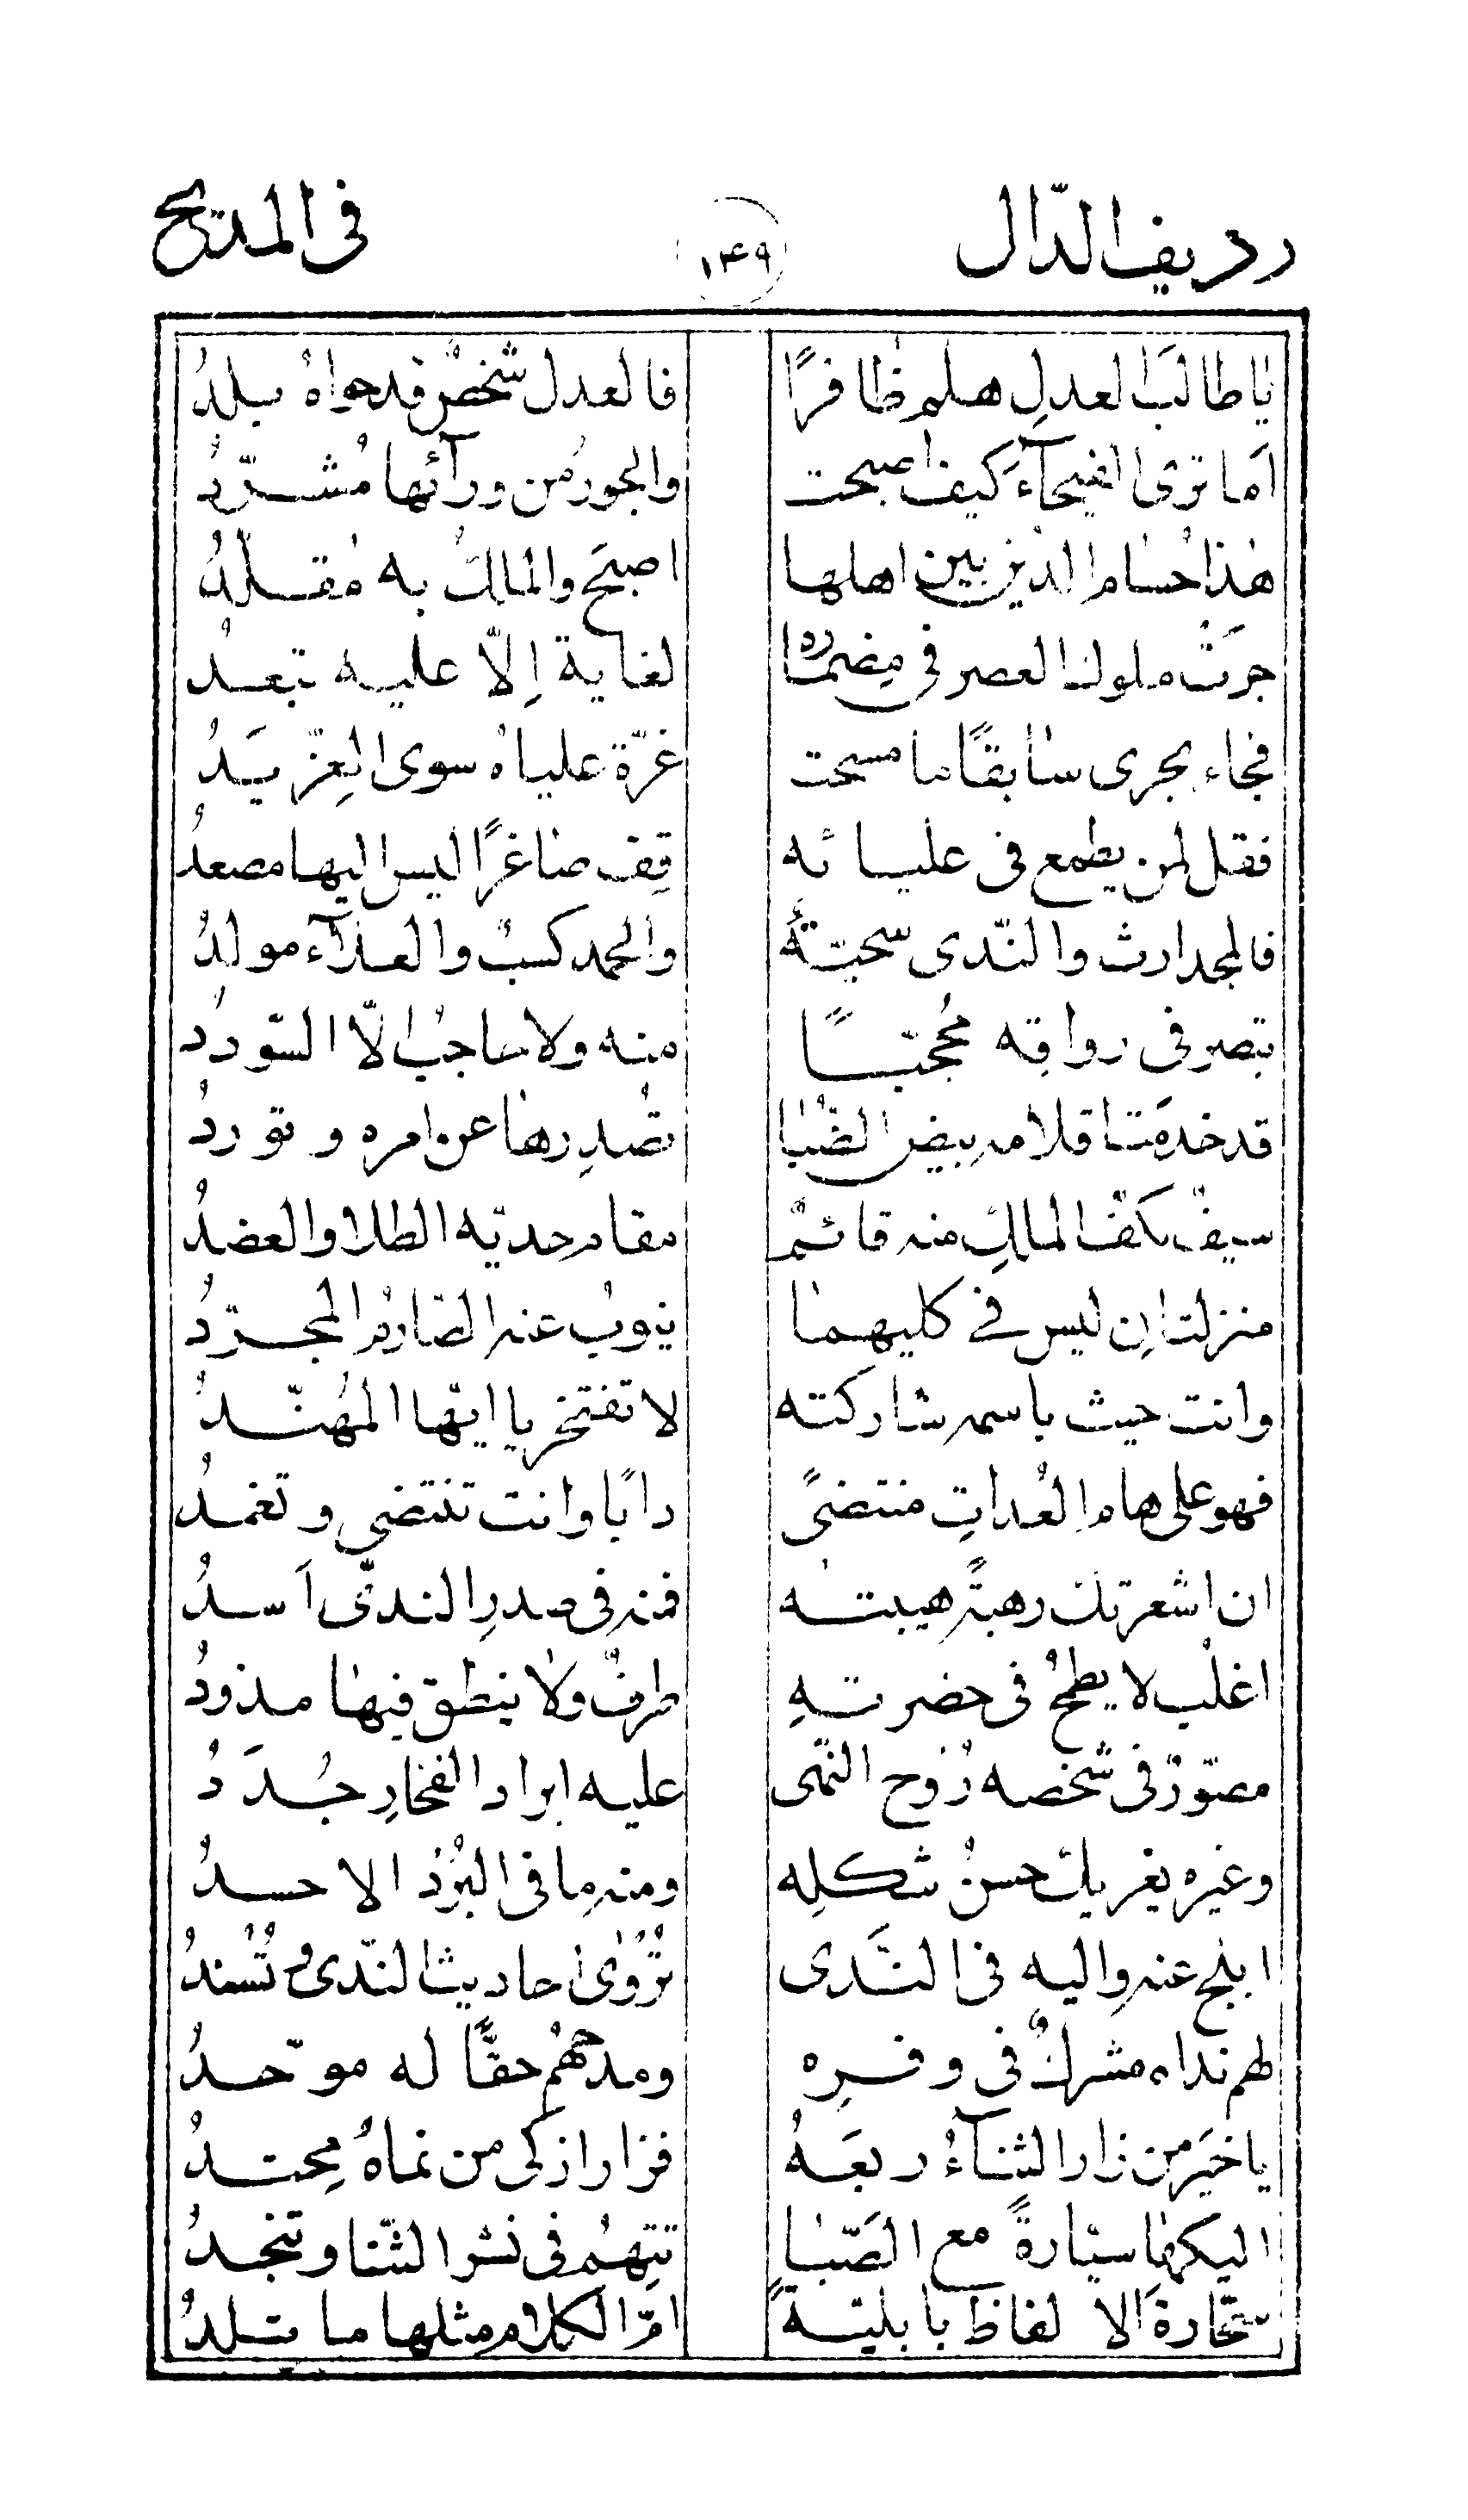 رديف الدّال ١٤٩ فى المديح
ياطالبَ العدلِ هلم ظافرًا فالعدل شخصٌ قد حواهُ بلدُ
اَما ترى الفيحآءَ كيف اصبحت والجورُ من ورآئها مُشرّدُ
هٰذا حُسام الدين بين اهلها اصبَح والملكُ به مقلّدُ
جرَت ملوك العصر فى مِضماره لغاية اِلّا عليه تبعدُ
فجاء يجرى سابقًا ما مسحت غرّة علياهُ سوى العِزّ يَدُ
فقل لمن يطمع فى عليائه قِف صاغرًا ليس اليها مصعدُ
فالمجد ارث والنّدى سجيّةٌ والحمد كسبٌ والعلآءَ مولدُ
تبصر فى رواقِه مُحجّبًا منه ولا حاجبُ الّا السّوددُ
قد خدمَت اقلامه بيض الظُّبا تُصدِرها عن امره وتوردُ
سيفٌ بكفّ الملكِ منه قائمٌ مقام حدّيه الطلا والعضدُ
منزلتانِ ليس فى كليهما ينوبُ عنه الصّارمُ المجرّدُ
وانت حيث باسمه شاركته لا تفتخر يا ايّها المُهنّدُ
فهو على هام العُداتِ منتضىً دابًا وانت تنتضى وتغمدُ
ان اشعرتك رهبةً هيبته فمنه فى صدرِ الندىّ اَسدُ
اغلب لا يطمحُ فى حضرتهِ طرفٌ ولا ينطق فيها مذودُ
مصوّرٌ فى شخصه رُوح النّهى عليه ابراد الفخارِ جُدَدُ
وغيره يغريك حسنُ شكلِه ومنه ما فى البُرْد الا حسدُ
ابلج عنه واليه فى النَّدى تُرْوىٰ احاديث النّدىٰ وتُسْندُ
لهم نداه مشركٌ فى وفرِه ومدحُهُم حقًّا له موحّدُ
ياخيَر من زار الثنآءُ ربعَهُ فزار ازكى من نماهُ مِحتدُ
اليكها سيّارةً مع الصَّبا تتهِمُ فى نشر الثّنا وتنجدُ
سحّارةَ الالفاظ بابليّةً امّ الكلام مثلها ما تلدُ